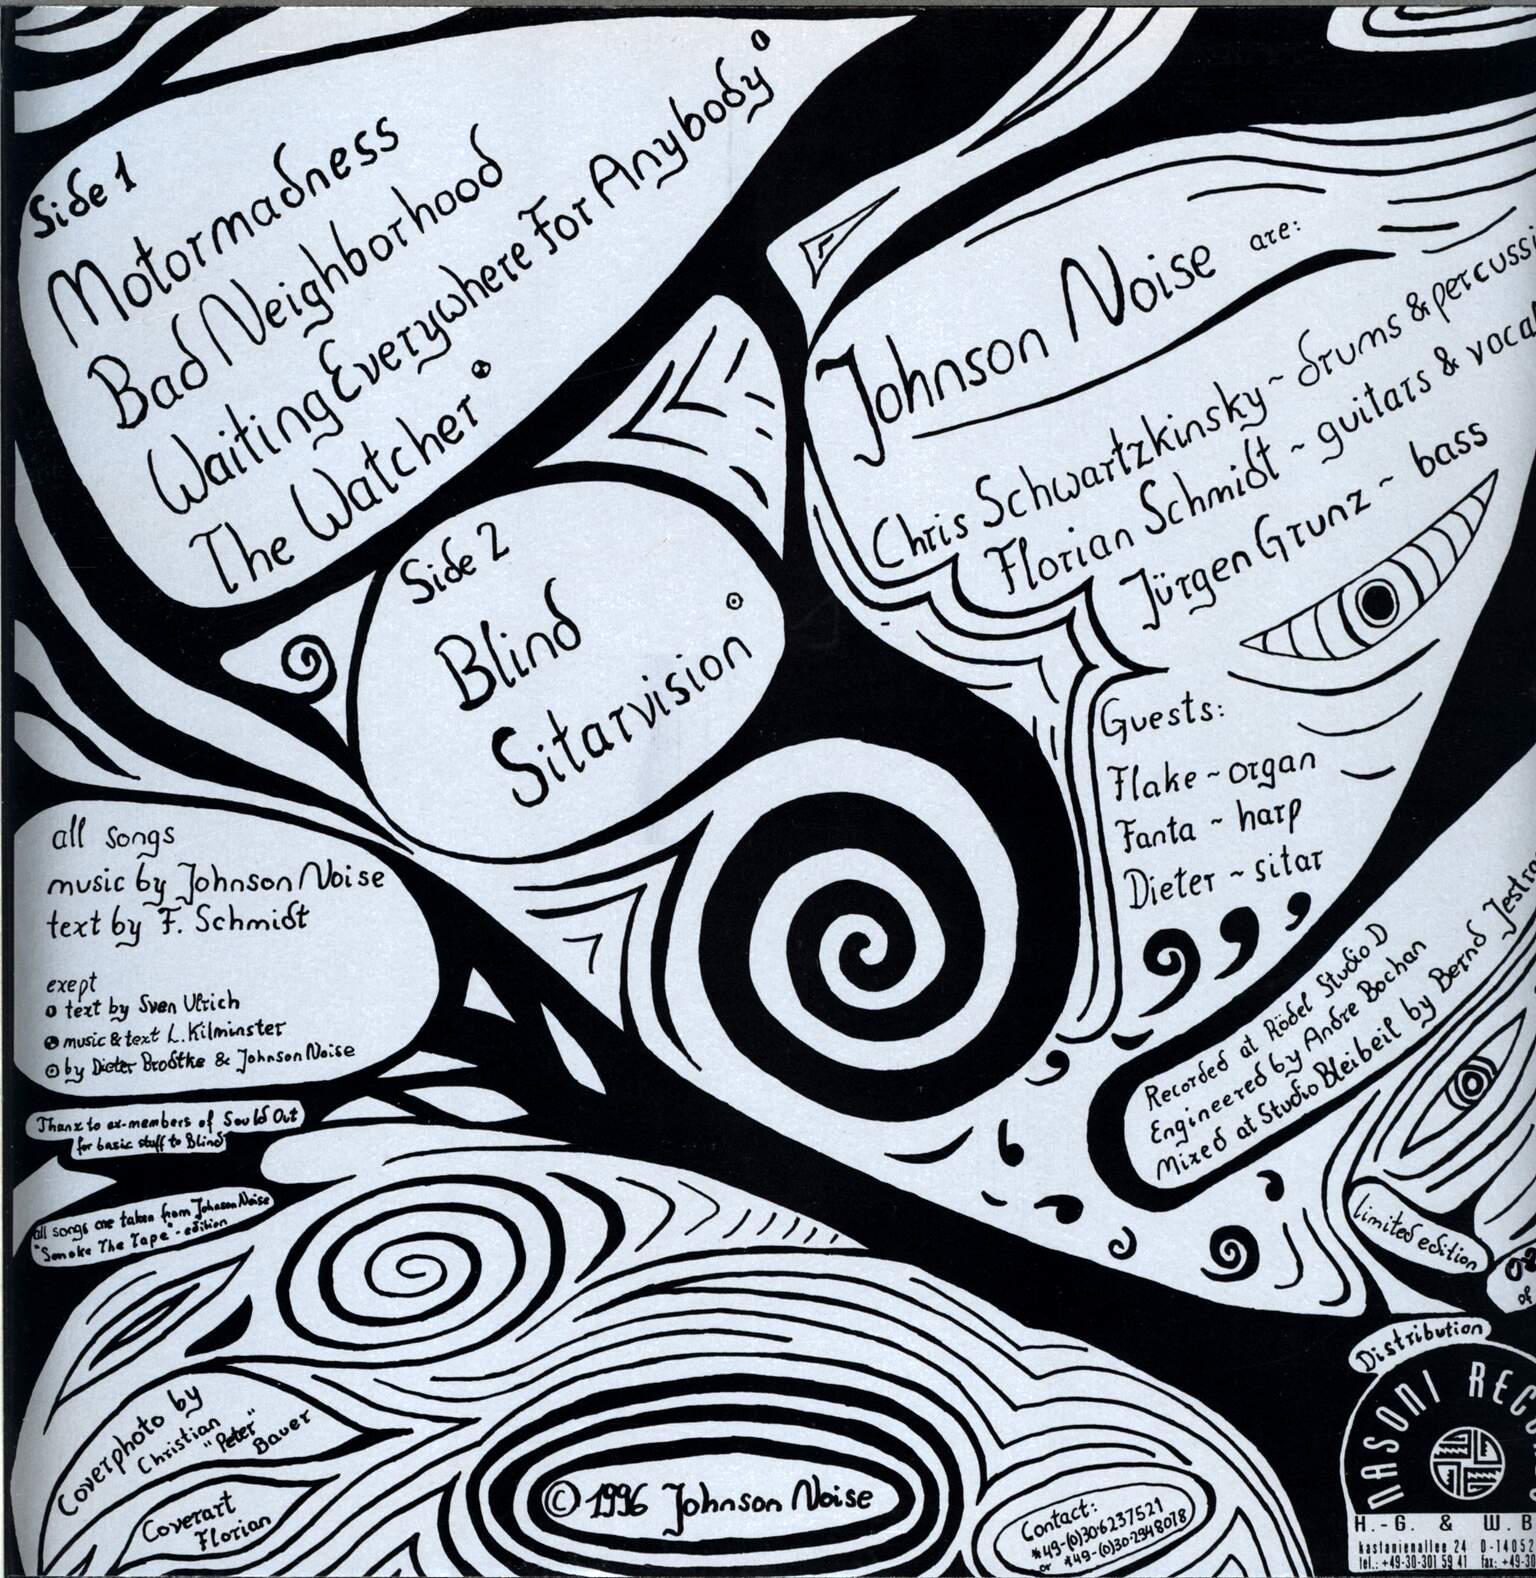 Side 1
Motormadness
Bad Neighborhood
Waiting Everywhere For Anybody
The Watcher
Side 2
Blind
Sitarvision
Johnson Noise are:
Chris Schwartzkinsky ~ drums & percussi
Florian Schmidt ~ guitars & voca
Jürgen Grunz ~ bass
Guests:
Flake ~ organ
Fanta ~ harp
Dieter ~ sitar
all songs
music by Johnson Noise
text by F. Schmidt
exept
text by Sven Ulrich
music & text L. Kilminster
by Dieter Brodtke & Johnson Noise
Thanx to ex-members of Sould Out
for basic stuff to Blind
all songs are taken from Johnson Noise
"Smoke The Tape"-edition
Recorded at Rödel Studio D
Engineered by Andre Bochan
Mixed at Studio Bleibeil by Bernd Jestra
limited edition
of
Distribution
NASONI REC
H.-G. & W.B
kastanienallee 24 D-14052
tel.: +49-30-301 59 41 fax: +49-30
Coverphoto by
Christian
"Peter"
Bauer
Coverart
Florian
© 1996 Johnson Noise
Contact:
*49-(0)30-6237521
or *49-(0)30-2948078